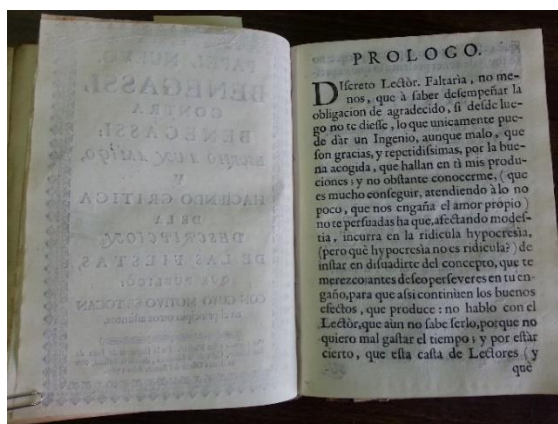 PAPEL NUEVO.
BENEGASSI,
CONTRA
BENEGASSI:
Y
HACIENDO CRITICA
DE LA
DESCRIPCION
DE LAS FIESTAS,
QUE PUBLICÒ;
CON CUYO MOTIVO SE TOCAN
PROLOGO.
DIſcreto Lectòr. Faltarìa, no me-
nos, que à ſaber deſempeñar la
obligacion de agradecido, ſi deſde lue-
go no te dieſſe, lo que unicamente pue-
de dàr un Ingenio, aunque malo, que
ſon gracias, y repetidiſsimas, por la bue-
na acogida, que hallan en tì mis produ-
ciones; y no obſtante conocerme, (que
es mucho conſeguir, atendiendo à lo no
poco, que nos engaña el amor proprio)
no te perſuadas ha que, afectando modeſ-
tia, incurra en la ridicula hypocresìa,
(pero què hypocresìa no es ridicula?) de
inſtar en diſuadirte del concepto, que te
merezco; antes deſeo perſeveres en tu en-
gaño, para que aſsi continùen los buenos
efectos, que produce: no hablo con el
Lectòr, que aùn no ſabe ſerlo, porque no
quiero mal gaſtar el tiempo; y por eſtàr
cierto, que eſta caſta de Lectores (y
què